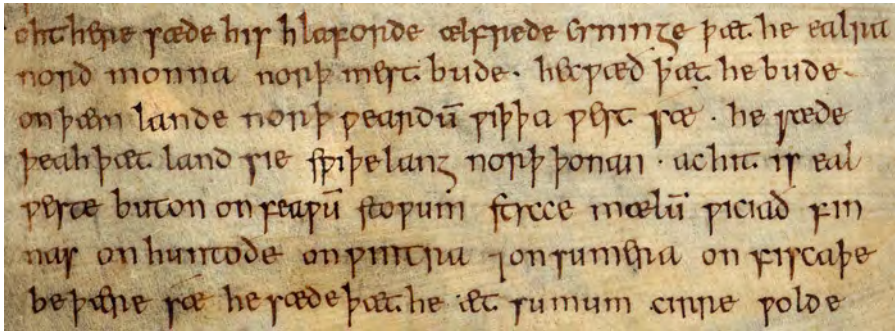 ohthere sæde his hlaforde ælfrede cyninge þæt he ealra
norð monna norþ mest bude · he cwæð þæt he bude
on þæm lande norþ weardū wiþþa west sæ · he sæde
þeah þæt land sie swiþe lang norþ þonan · ac hit is eal
weste buton on feawū stowum sticce mælū wiciað fin
nas on huntoðe on wintra ⁊ on sumera on fiscaþe
be þære sæ he sæde þæt he æt sumum cirre wolde